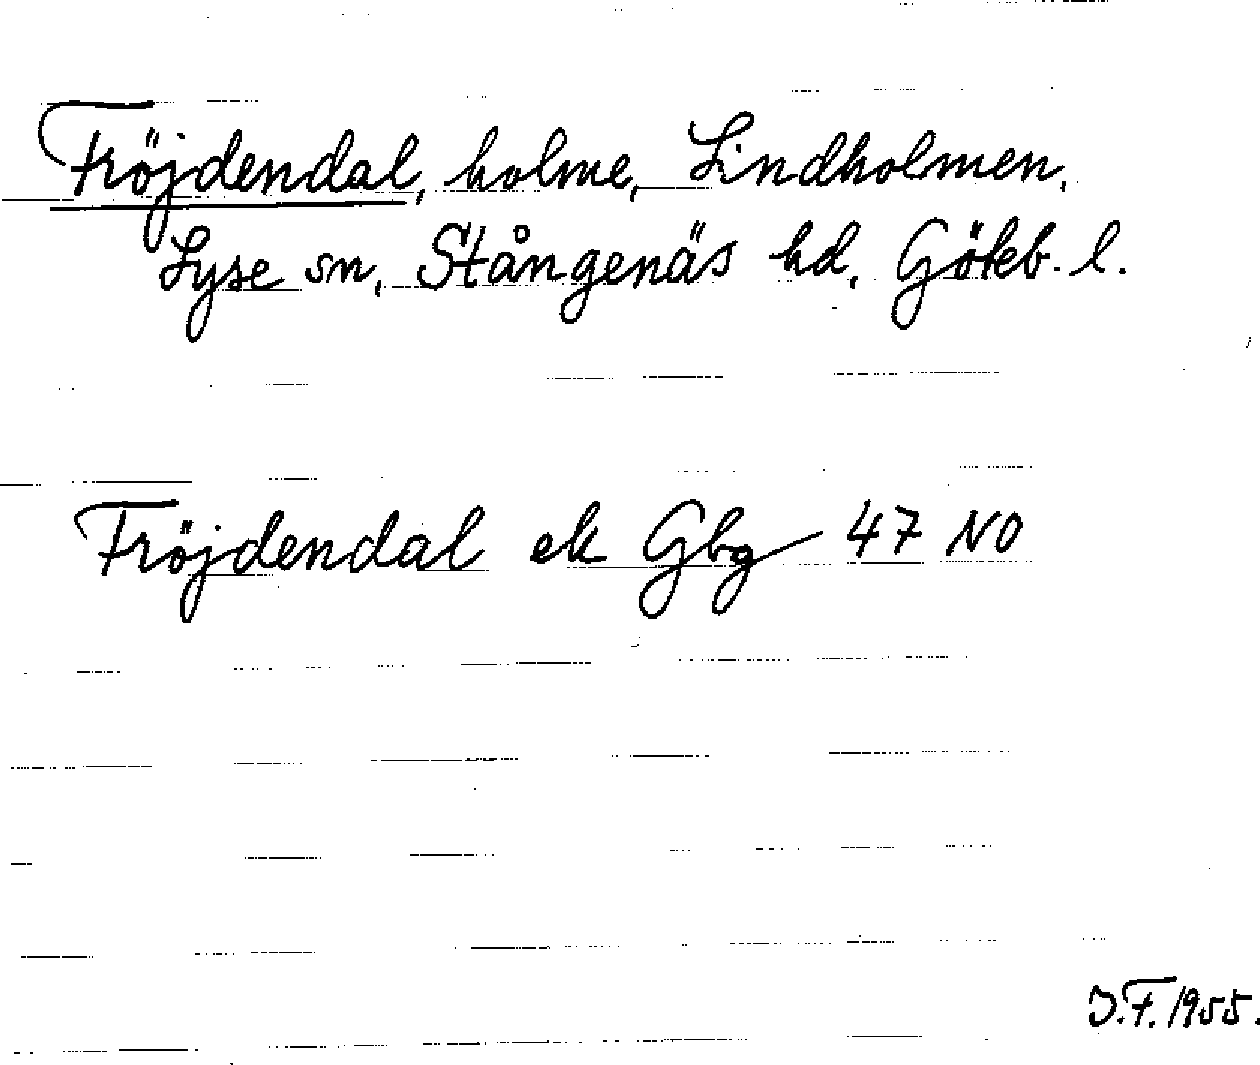 Fröjdendal, holme, Lindholmen,
Lyse sn, Stångenäs hd, Göteb. l.
Fröjdendal ek Gbg 47 NO
J.F. 1955.